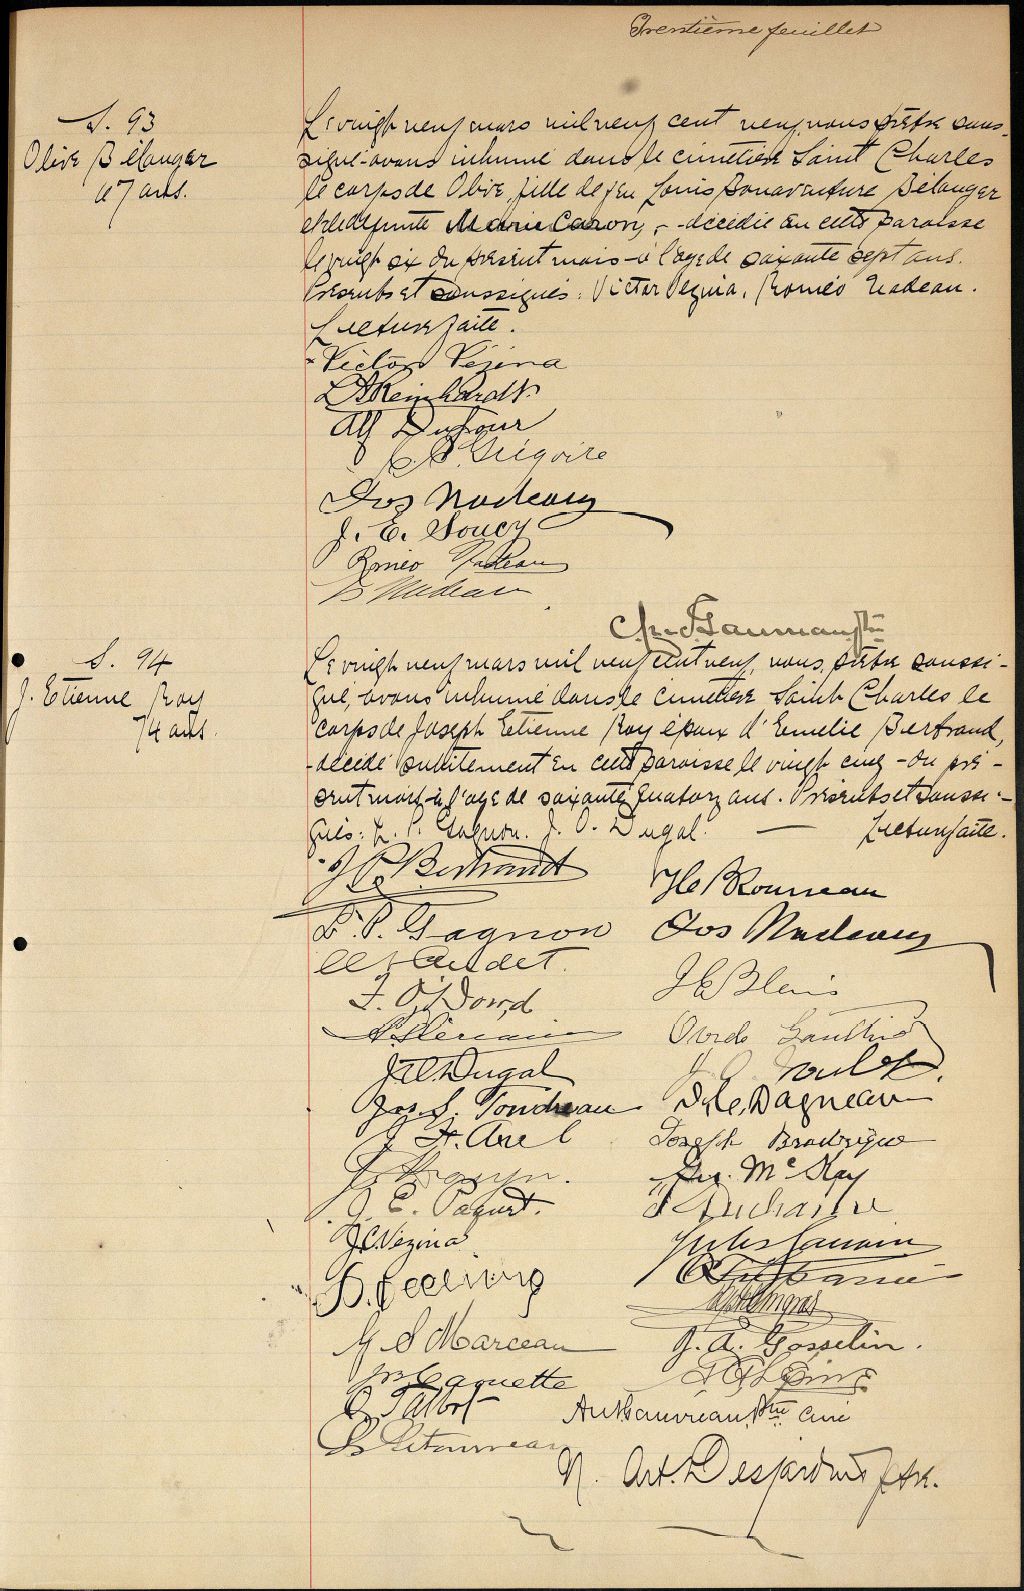 Trentième feuillet
S. 93
Olive Bélanger
67 ans.
Le vingt neuf mars mil neuf cent neuf, nous prêtre sous-
signé avons inhumé dans le cimetière Saint Charles
le corps de Olive, fille de feu Louis Bonaventure Bélanger
et de défunte Marie Caron, décédée en cette paroisse
le vingt six du présent mois à l'age de soixante sept ans.
Présents et soussignés: Victor Vézina, Roméo Nadeau.
Lecture faite.
Victor Vézina
L A Reinhardt
Alf Dufour
Grégoire
Jos Nadeau
J. E. Soucy
Roméo Nadeau
Nadeau
S. 94
J. Etienne Roy
74 ans
Le vingt neuf mars mil neuf cent neuf, nous, prêtre soussi-
gné, avons inhumé dans le cimetière Saint Charles le
corps de Joseph Etienne Roy époux d'Emélie Bertrand,
décédé subitement en cette paroisse le vingt cinq du pré-
sent mois à l'age de soixante quatorz ans. Présents et soussi-
gnés: L. P. Gagnon. J. O. Dugal. — Lecture faite.
J P Bertrand
B Rousseau
L. P. Gagnon
Jos Nadeau
Audet.
J E Blais
F. O'Dowd
Ovide Gauthier
Dugal
Jos. S. Tondreau
Dagneau
J H. Arel
Joseph Brodrigue
Mc Kay
J. E. Paquet.
Duchaine
J. C. Vézina
Jules Gauvin
G S Marceau
J. A. Gosselin.
Paquette
O Talbot
Ant Gauvreau, Ptre Curé
Letourneau
N. Art. Desjardins Ptre.